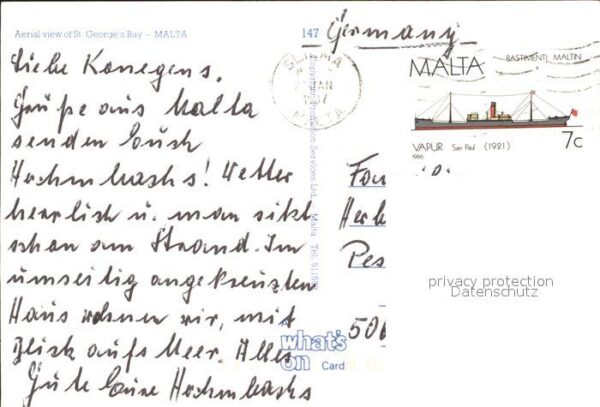 Aerial view of St. George's Bay – MALTA
147 Germany
Liebe Konegens,
Grüße aus Malta
senden Euch
Hochmbachs! Wetter
herrlich u. man sitzt
schon am Strand. Im
umseitig angekreuzten
Haus wohnen wir, mit
Blick aufs Meer. Alles
Gute Eure Hochmbachs
SLIEMA
MALTA
MALTA
BASTIMENTI MALTIN
7c
VAPUR San Paul (1921)
1986
Fam
Herb
Pes
506
privacy protection
Datenschutz
what's on Card
Services Ltd., Malta Tel.